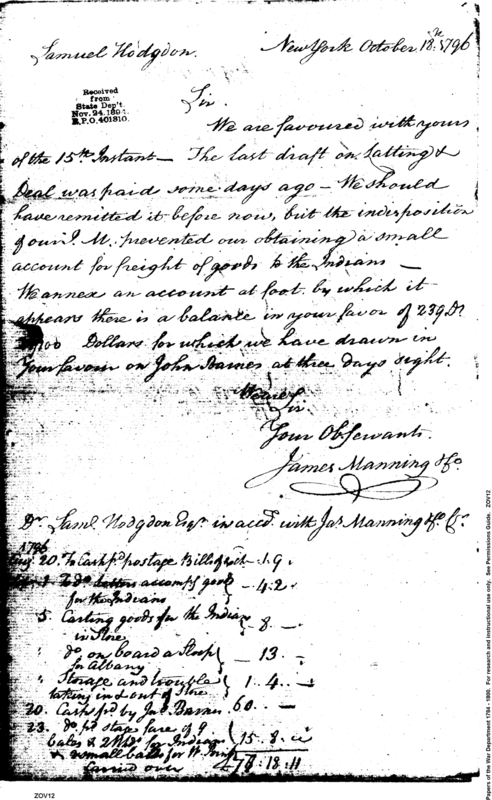 Samuel Hodgdon.
New York October 18th. 1796
Received
from
State Dep't.
Nov. 24. 1894.
R.P.O. 401810.
Sir.
We are favoured with yours
of the 15th Instant — The last draft on Latting &
Deal was paid some days ago — We should
have remitted it before now, but the indisposition
of our J. M. prevented our obtaining a small
account for freight of goods to the Indians —
We annex an account at foot by which it
appears there is a balance in your favor of 239 Ds
/100 Dollars for which we have drawn in
Your favour on John Barnes at three days sight.
We are
Sir.
Your Obt Servants.
James Manning & Co.
Dr Saml. Hodgdon Esqr in acct. with Jas. Manning & Co Cr.
1796
20. To Cash pd postage Bills of - 1.9
To do letters accompg goods } - 4.2
for the Indians
5. Carting goods for the Indians } 8. -
in Store
" do on board a Sloop } - 13. -
for Albany
" Storage and trouble } 1. 4. -
taking in & out of Store
20. Cash pd by Jno. Barnes 60. - -
23. do pd stage fare of 9
bales & 2 for Indians } 15. 8.
& small bale for
Carried over 78. 18. 11
ZOV12
Papers of the War Department 1784 - 1800. For research and instructional use only. See Permissions Guide. ZOV12